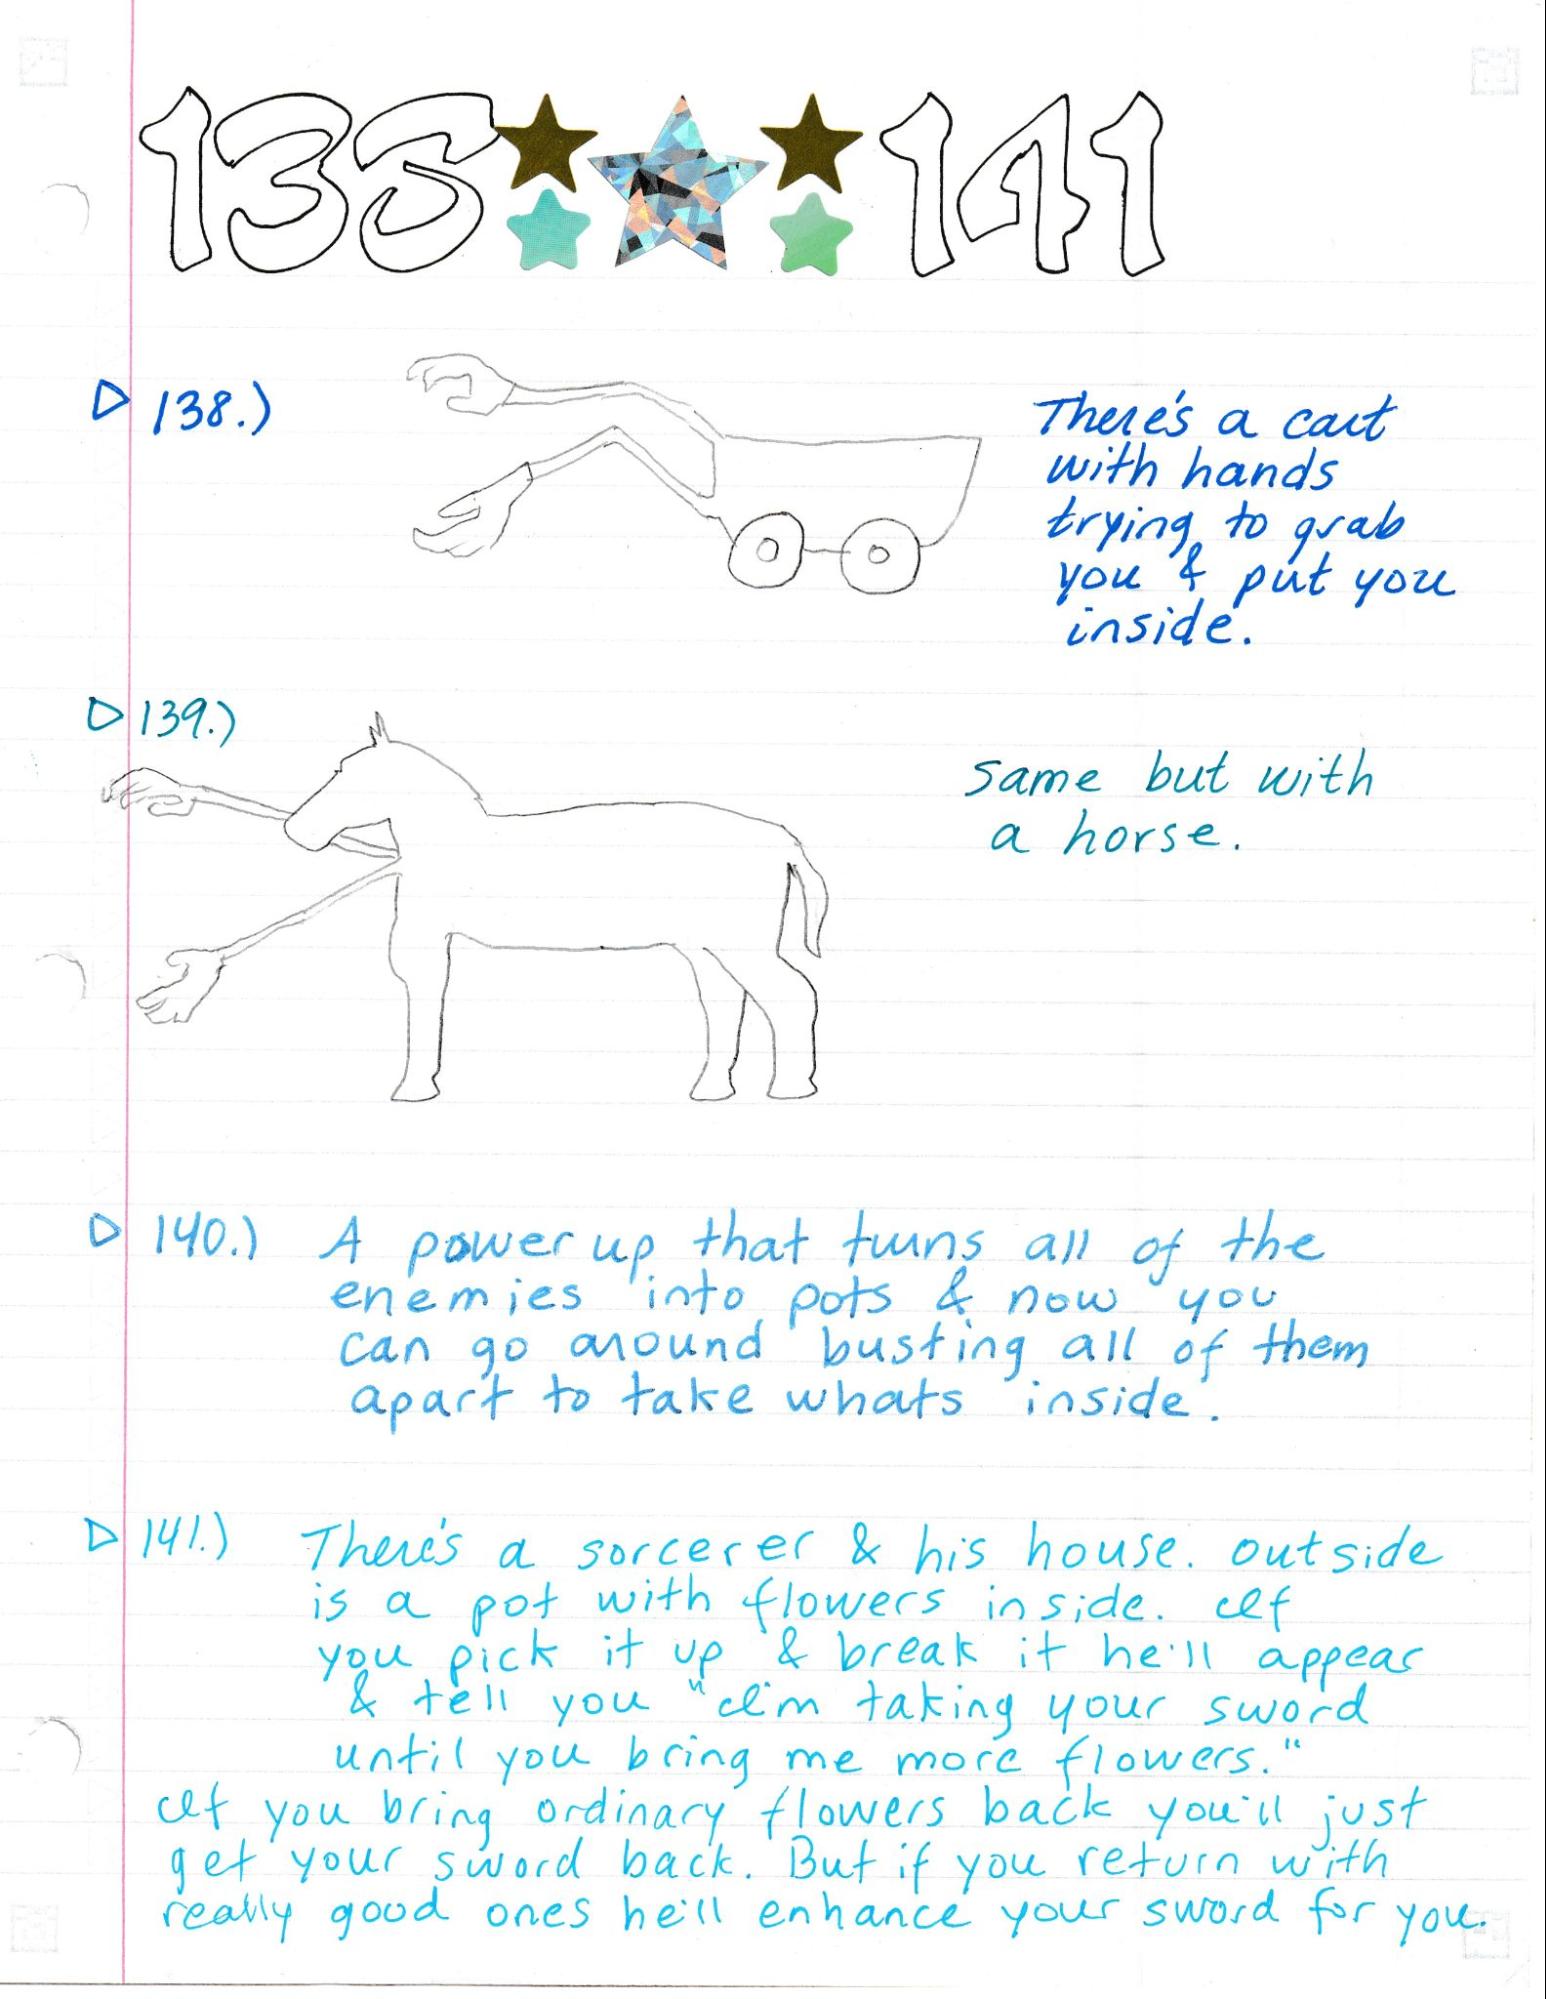 138 141
138.)
There's a cart
with hands
trying to grab
you & put you
inside.
139.)
Same but with
a horse.
140.) A power up that turns all of the
enemies into pots & now you
can go around busting all of them
apart to take whats inside.
141.) There's a sorcerer & his house. Outside
is a pot with flowers inside. If
you pick it up & break it he'll appear
& tell you "I'm taking your sword
until you bring me more flowers."
If you bring ordinary flowers back you'll just
get your sword back. But if you return with
really good ones he'll enhance your sword for you.